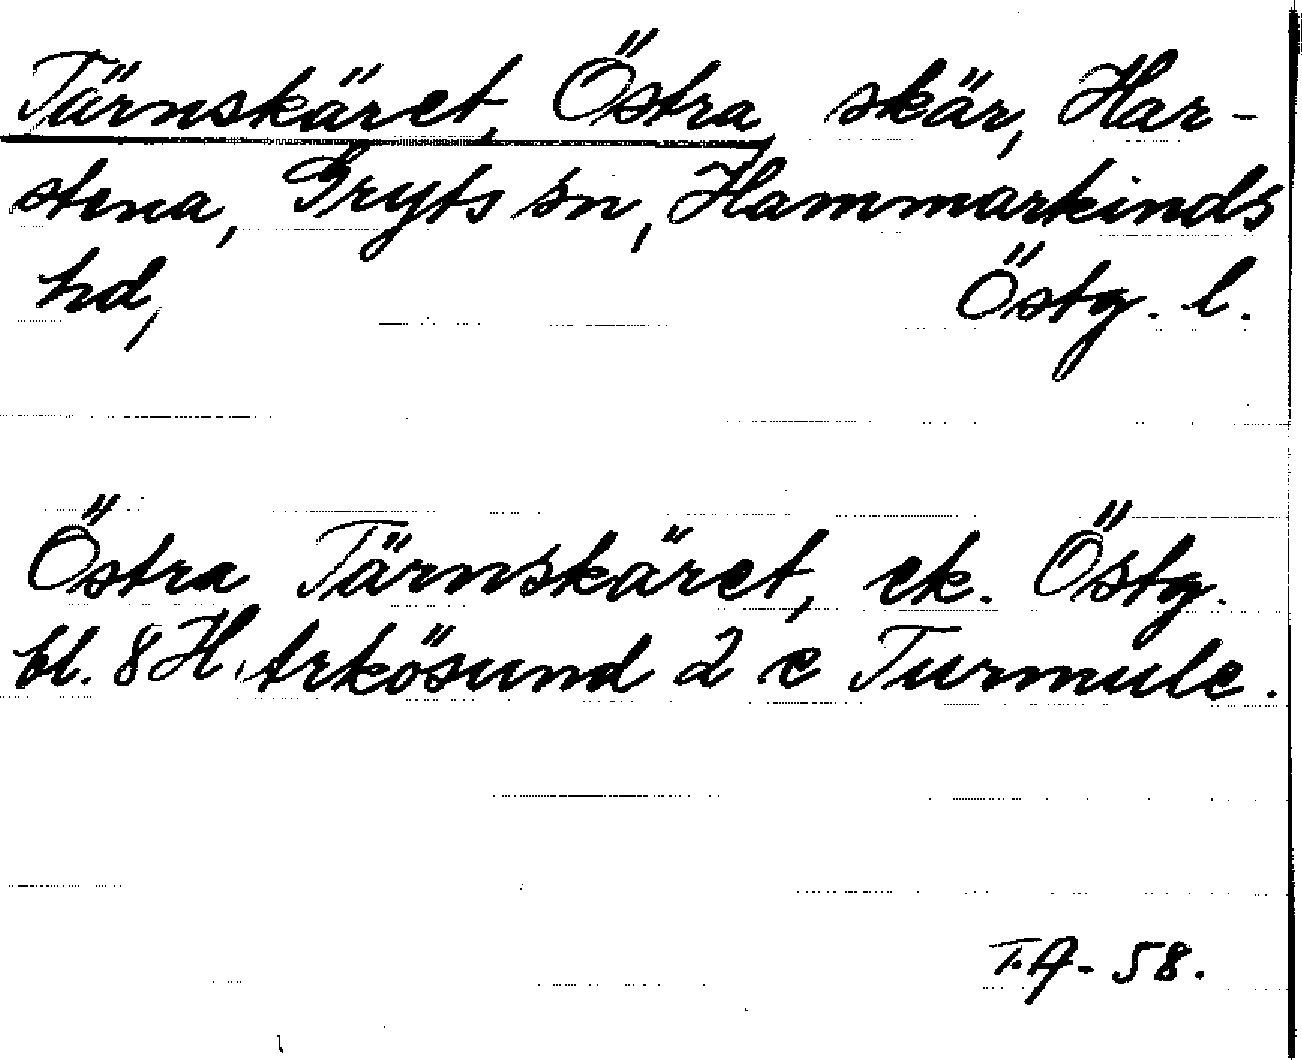 Tärnskäret, Östra, skär, Har-
stena, Gryts sn, Hammarkinds
hd, Östg. l.
Östra Tärnskäret, ek. Östg.
bl. 8H. Arkösund 2 c Turmule.
T.A- 58.